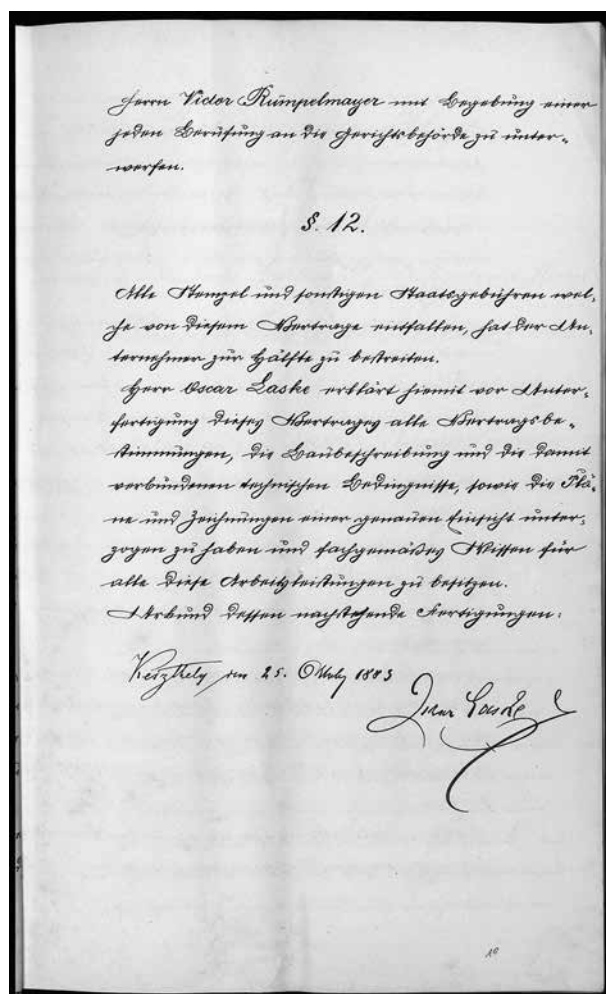 Herrn Victor Rumpelmayer mit Begebung einer
jeden Berufung an die Gerichtsbehörde zu unter-
werfen.
§. 12.
Alle Stempel und sonstigen Staatsgebühren wel-
che von diesem Vertrage entfallen, hat der Un-
ternehmer zur Hälfte zu bestreiten.
Herr Oscar Laske erklärt hiemit vor Unter-
fertigung dieses Vertrages alle Vertragsbe-
stimmungen, die Baubeschreibung und die damit
verbundenen technischen Bedingnisse, sowie die Plä-
ne und Zeichnungen einer genauen Einsicht unter-
zogen zu haben und fachgemäßes Wissen für
alle diese Arbeitsleistungen zu besitzen.
Urkund dessen nachstehende Fertigungen:
Keszthely, den 25. 1883
Oscar Laske
10